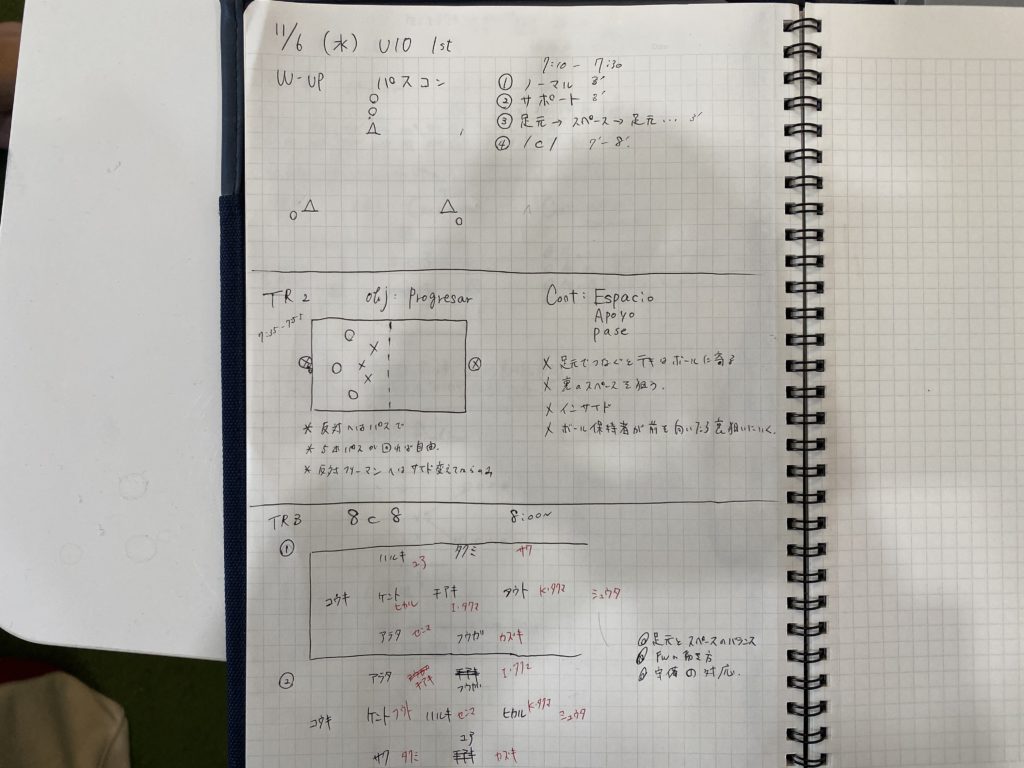 11/6 (水) U10 1st
7:10 - 7:30
W-UP パスコン
① ノーマル 3'
② サポート 3'
③ 足元→スペース→足元… 3'
④ 1c1 7'-8'
TR 2 obj: Progresar Cont: Espacio
Apoyo
pase
7:35-7:55
* 反対へはパスで
* 5本パスが回れば自由.
* 反対フリーマンへは
× 足元でつなぐとテキはボールに寄る
× 裏のスペースを狙う.
× インサイド
× ボール保持者が前を向いたら裏狙いにいく.
TR3 8c8 8:00~
①
ハルキ ユラ タクミ サク
コウキ ケント ヒカル チアキ I・タクマ K・タクマ ミュウタ
アラタ セーマ フウガ カズキ
足元とスペースのバランス
FWの動き方
守備の対応.
②
アラタ チアキ フウガ I・タクマ
コウキ ケント ハルキ セーマ ヒカル K・タクマ ミュウタ
サク タクミ ユラ カズキ